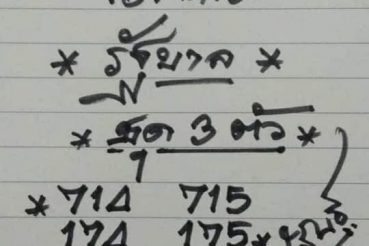 * รัฐบาล *
* ชุด 3 ตัว *
* 714 715
174 175 *